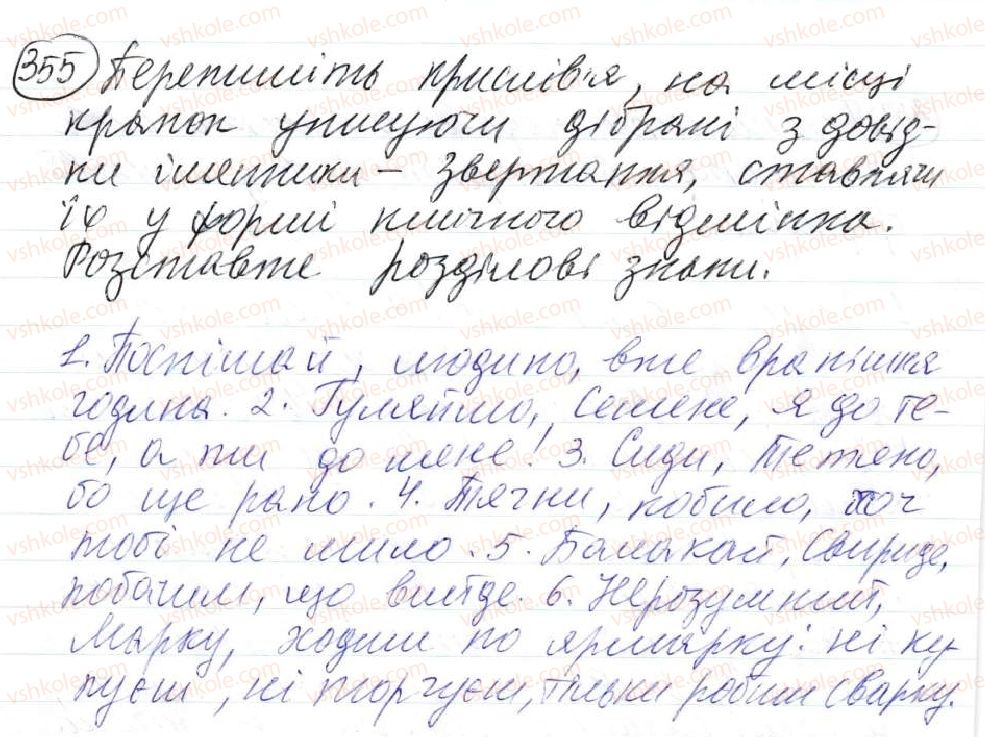 355 Перепишіть прислів'я, на місці
крапок уписуючи дібрані з довід-
ки іменники – звертання, ставлячи
їх у формі кличного відмінка.
Розставте розділові знаки.
1. Поспішай, людино, вже врапішня
година. 2. Гуляймо, Семене, я до те-
бе, а ти до мене. 3. Сиди, Тетяно,
бо ще рано. 4. Тягни, кобило, хоч
тобі не мило. 5. Балакай, Свириде,
побачим, що вийде. 6. Нерозумний,
Марку, ходиш по ярмарку: ні ку-
пуєш, ні торгуєш, тільки робиш сварку.